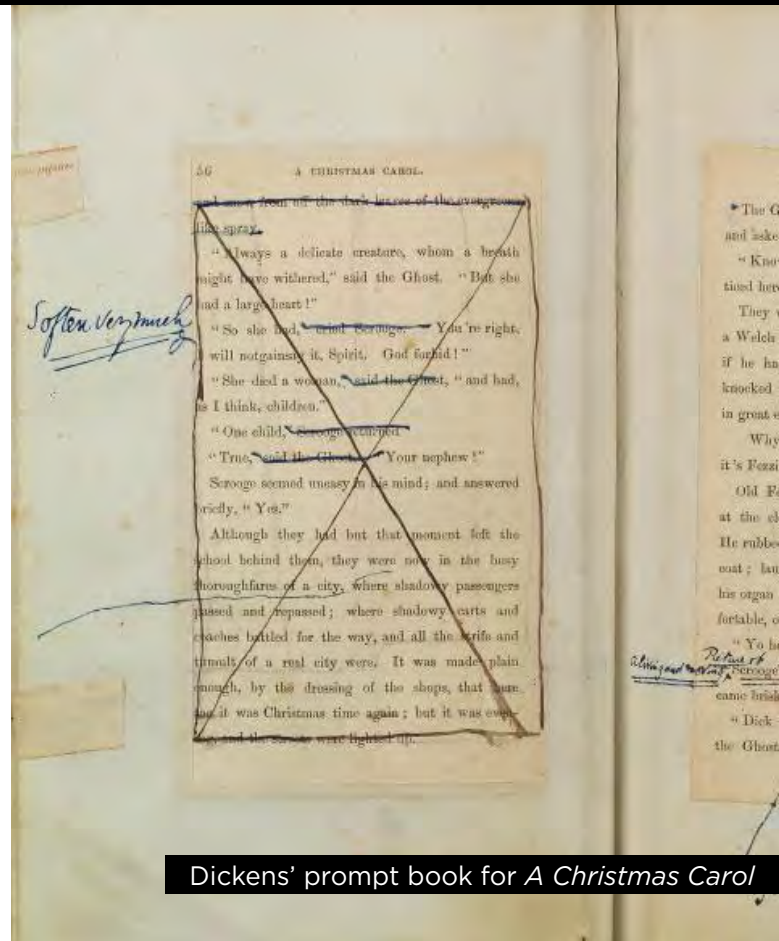 56 A CHRISTMAS CAROL.
and snow, from off the dark leaves of the evergreens
like spray.
“Always a delicate creature, whom a breath
might have withered,” said the Ghost. “But she
had a large heart!”
“So she had,” cried Scrooge. “You're right,
I will not gainsay it, Spirit. God forbid!”
“She died a woman,” said the Ghost, “and had,
as I think, children.”
“One child,” Scrooge returned.
“True,” said the Ghost. “Your nephew!”
Scrooge seemed uneasy in his mind; and answered
briefly, “Yes.”
Although they had but that moment left the
school behind them, they were now in the busy
thoroughfares of a city, where shadowy passengers
passed and repassed; where shadowy carts and
coaches battled for the way, and all the strife and
tumult of a real city were. It was made plain
enough, by the dressing of the shops, that here
too it was Christmas time again; but it was even-
ing, and the streets were lighted up.
Soften very much
The G
and aske
“Know
ticed here
They w
a Welch
if he ha
knocked
in great e
Why
it's Fezzi
Old Fe
at the cl
He rubbe
coat; lau
his organ
fortable, o
“Yo ho
Picture of
Scrooge'
came brisk
“Dick
the Ghost
Dickens’ prompt book for A Christmas Carol